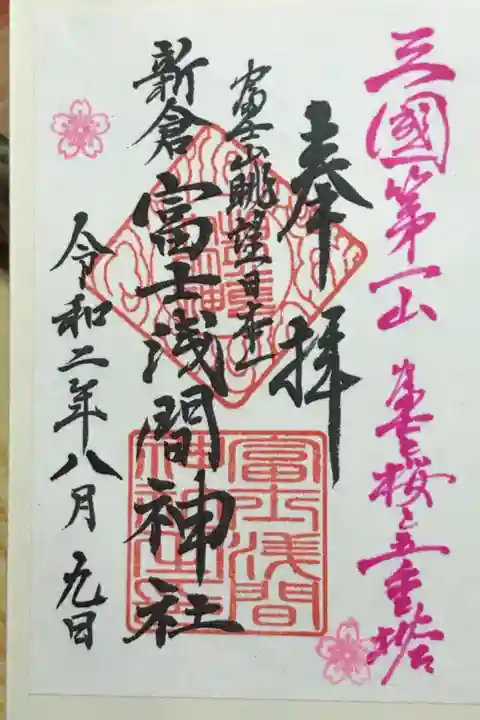 三國第一山 富士と桜と五重塔
奉拝
富士山眺望日本一
新倉富士浅間神社
令和二年八月九日
富士浅間